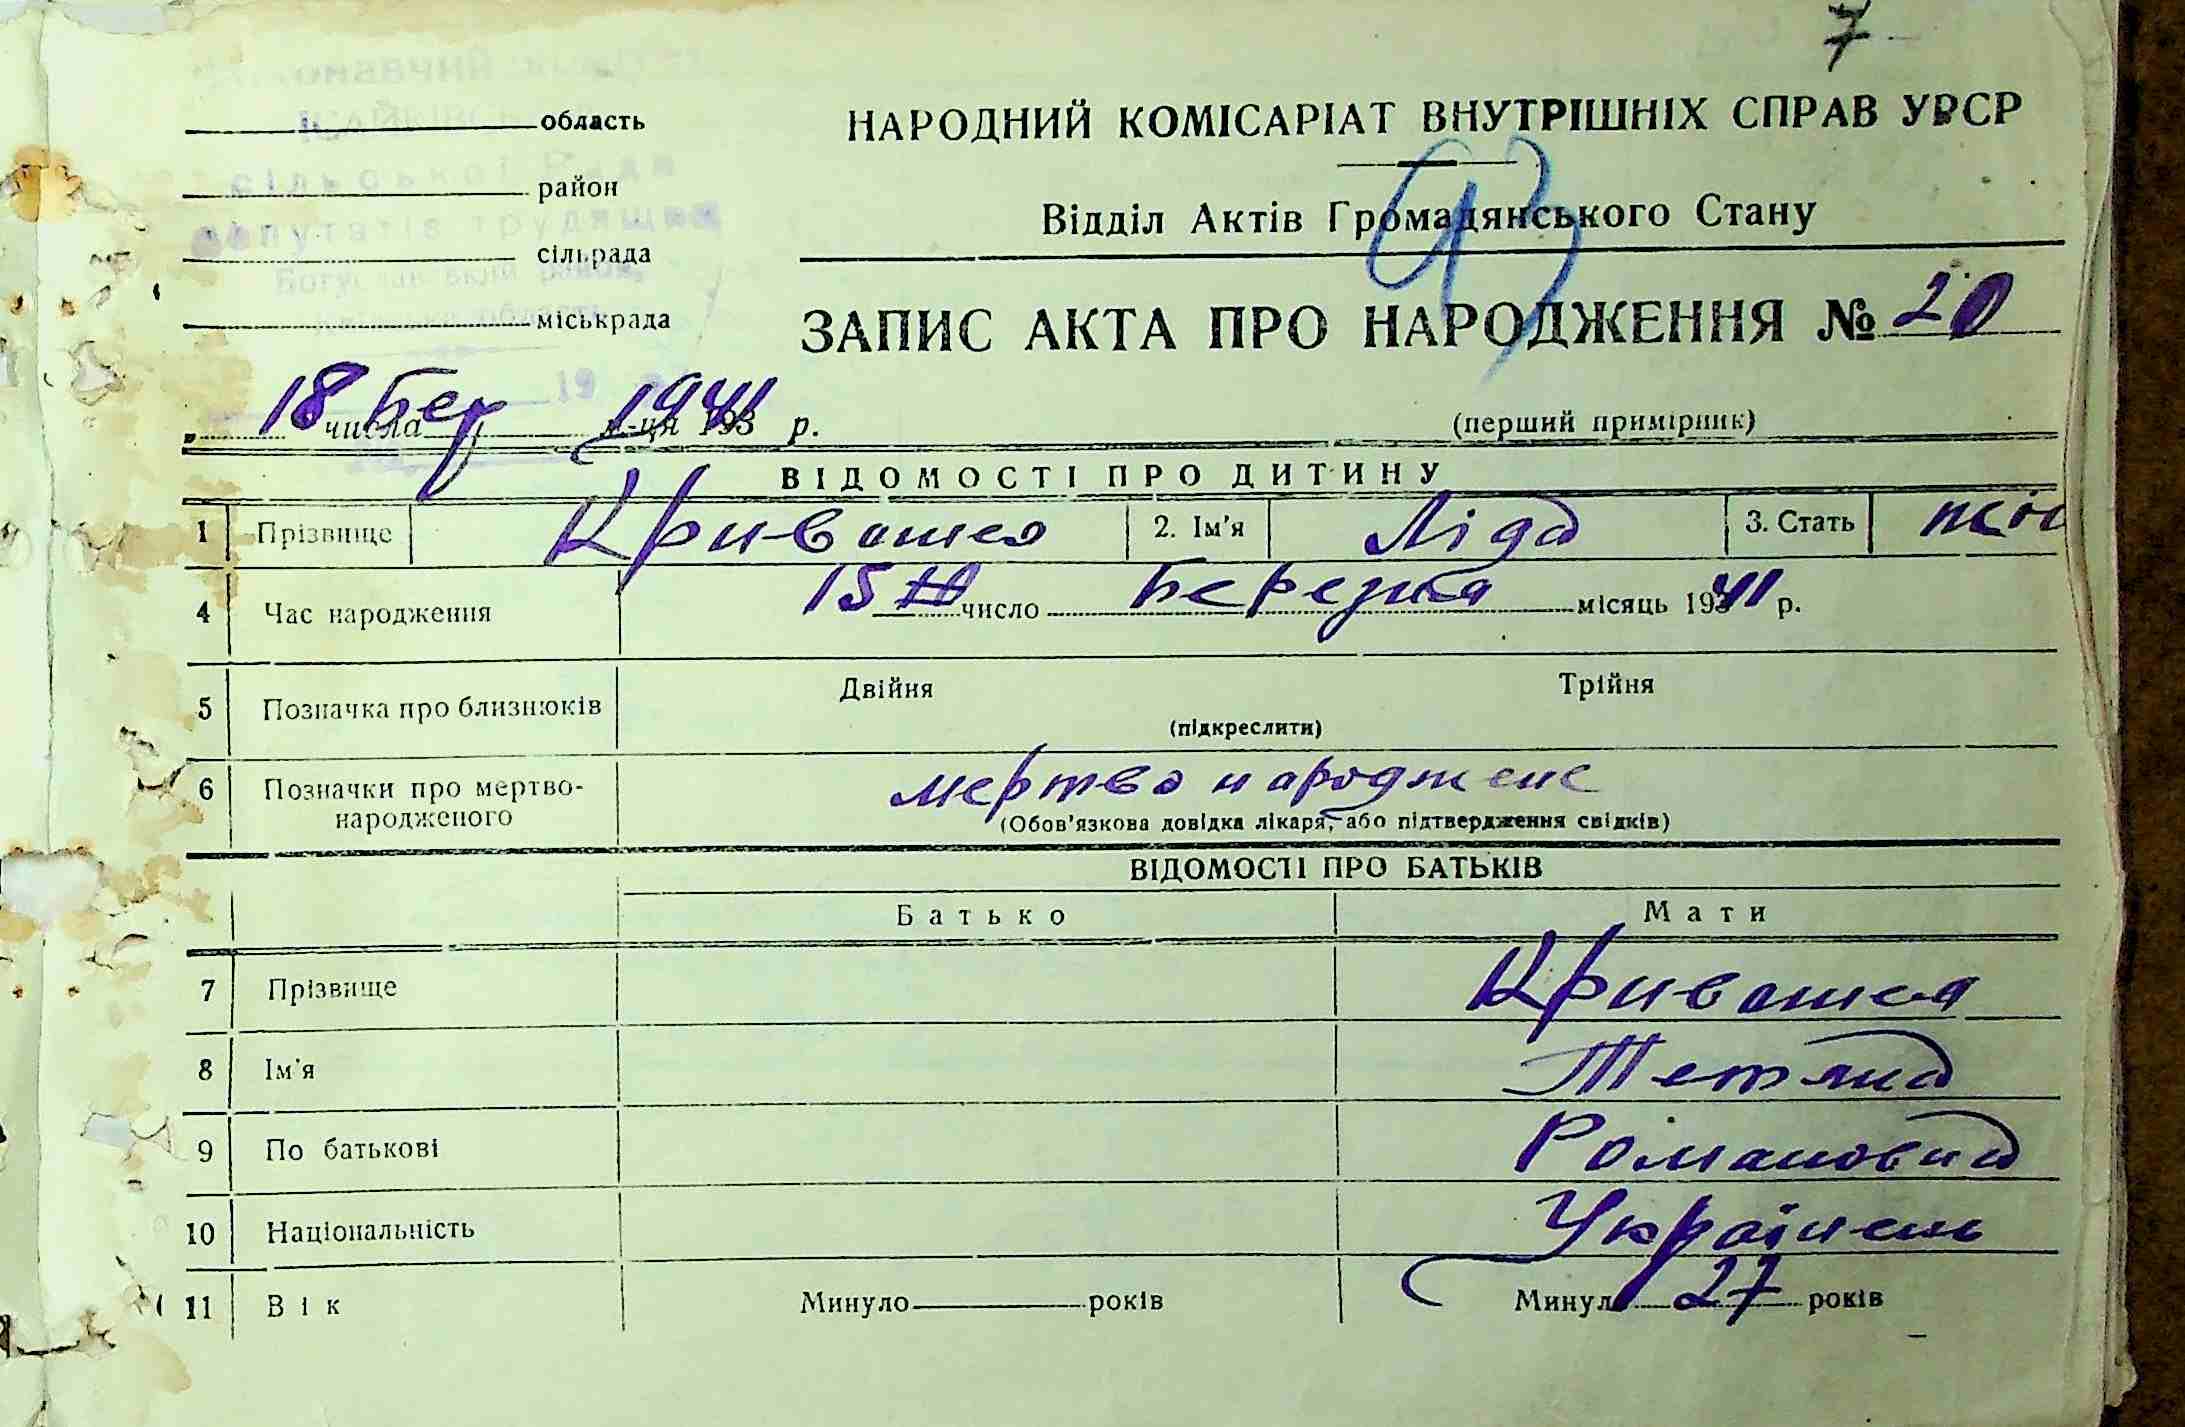 7
область
район
сільрада
міськрада
НАРОДНИЙ КОМІСАРІАТ ВНУТРІШНІХ СПРАВ УРСР
Відділ Актів Громадянського Стану
ЗАПИС АКТА ПРО НАРОДЖЕННЯ № 20
сільської Ради
депутатів трудящих
„ 18 числа Бер м-ця 1941 р.
(перший примірник)
ВІДОМОСТІ ПРО ДИТИНУ
1 Прізвище Кривошея 2. Ім'я Ліда 3. Стать жін
4 Час народження 15 число Березня місяць 1941 р.
5 Позначка про близнюків Двійня Трійня
(підкреслити)
6 Позначки про мертво-
народженого мертво народжене
(Обов'язкова довідка лікаря, або підтвердження свідків)
ВІДОМОСТІ ПРО БАТЬКІВ
Батько Мати
7 Прізвище Кривошея
8 Ім'я Тетяна
9 По батькові Романовна
10 Національність Українець
11 Вік Минуло років Минуло 27 років